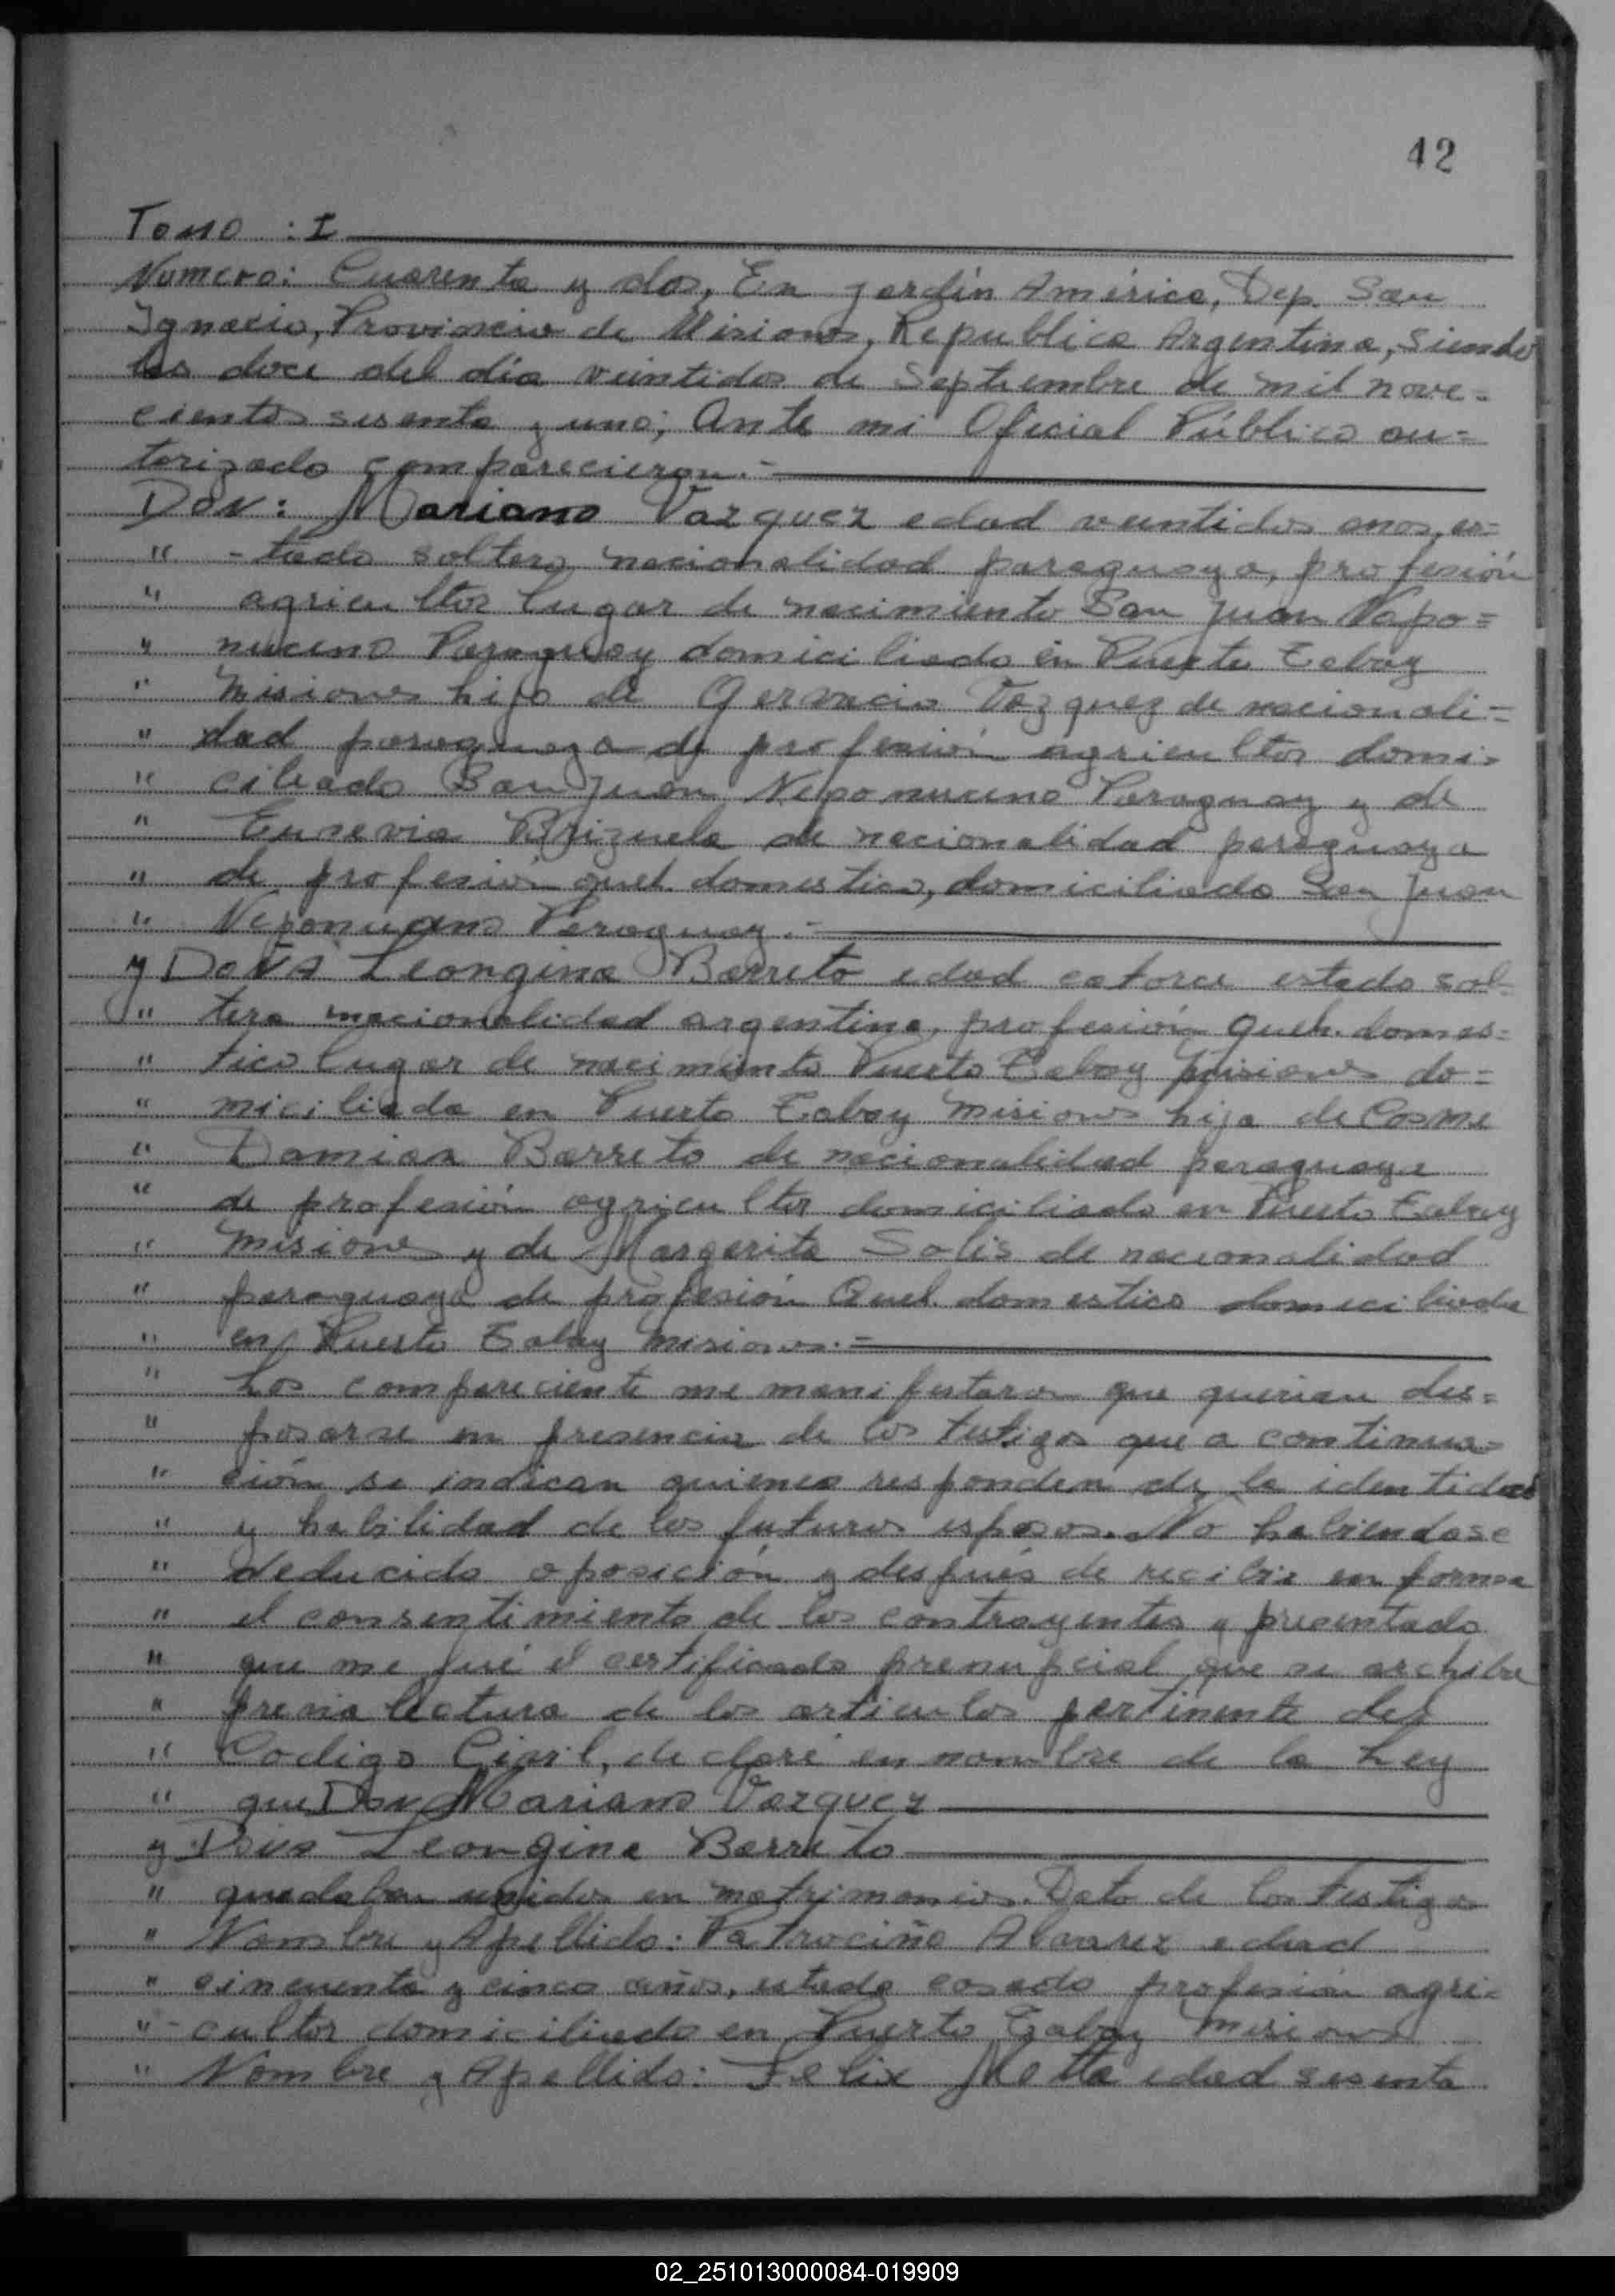 42
Tomo : I
Numero: Cuarenta y dos, En jardín América, Dep. San
Ignacio, Provincia de Misiones, Republica Argentina, Siendo
las doce del día veintidos de Septiembre de mil nove=
cientos sesenta y uno; Ante mi Oficial Público au=
torizado comparecieron.-
Don: Mariano Vazquez edad veintidos anos, es=
" -tado soltero nacionalidad paraguaya, profesión
" agricultor lugar de nacimiento San Juan Napo=
" muceno Paraguay domiciliado en Puerto Tabay
" Misiones hijo de Gervacio Vazquez de nacionali=
" dad paraguaya de profesión agricultor domi-
" ciliado San Juan Nepomuceno Paraguay y de
" Eusevia Brizuela de nacionalidad paraguaya
" de profesión queh. domestico, domiciliada San Juan
" Nepomuceno Paraguay.-
y Doña Leongina Barreto edad catorce estado sol-
" tera nacionalidad argentina, profesión queh. domes=
" tico lugar de nacimiento Puerto Tabay Misiones do=
" miciliada en Puerto Tabay Misiones hija de Cosme
" Damian Barreto de nacionalidad paraguaya
" de profesión agricultor domiciliado en Puerto Tabay
" Misiones y de Margarita Solis de nacionalidad
" paraguaya de profesión Queh. domestico domiciliada
" en Puerto Tabay Misiones.=
" Los compareciente me manifestaron que querian des=
" posarse en presencia de los testigos que a continua=
" ción se indican quienes responden de la identidad
" y habilidad de los futuros esposos. No habiendose
" deducido oposición y después de recibir en forma
" el consentimiento de los contrayentes y presentado
" que me fué el certificado prenupcial que se archiba
" previa lectura de los articulos pertinente del
" Codigo Civil, declaré en nombre de la Ley
" que Don Mariano Vazquez
y Doña Leongina Barreto
" quedaban unidos en matrimonio. Dato de los testigos
" Nombre y Apellido: Patrociño Alvarez edad
" cincuenta y cinco años, estado casado profesión agri-
" - cultor domiciliado en Puerto Tabay Misiones
" Nombre y Apellido: Felix Motta edad sesenta
02_251013000084-019909